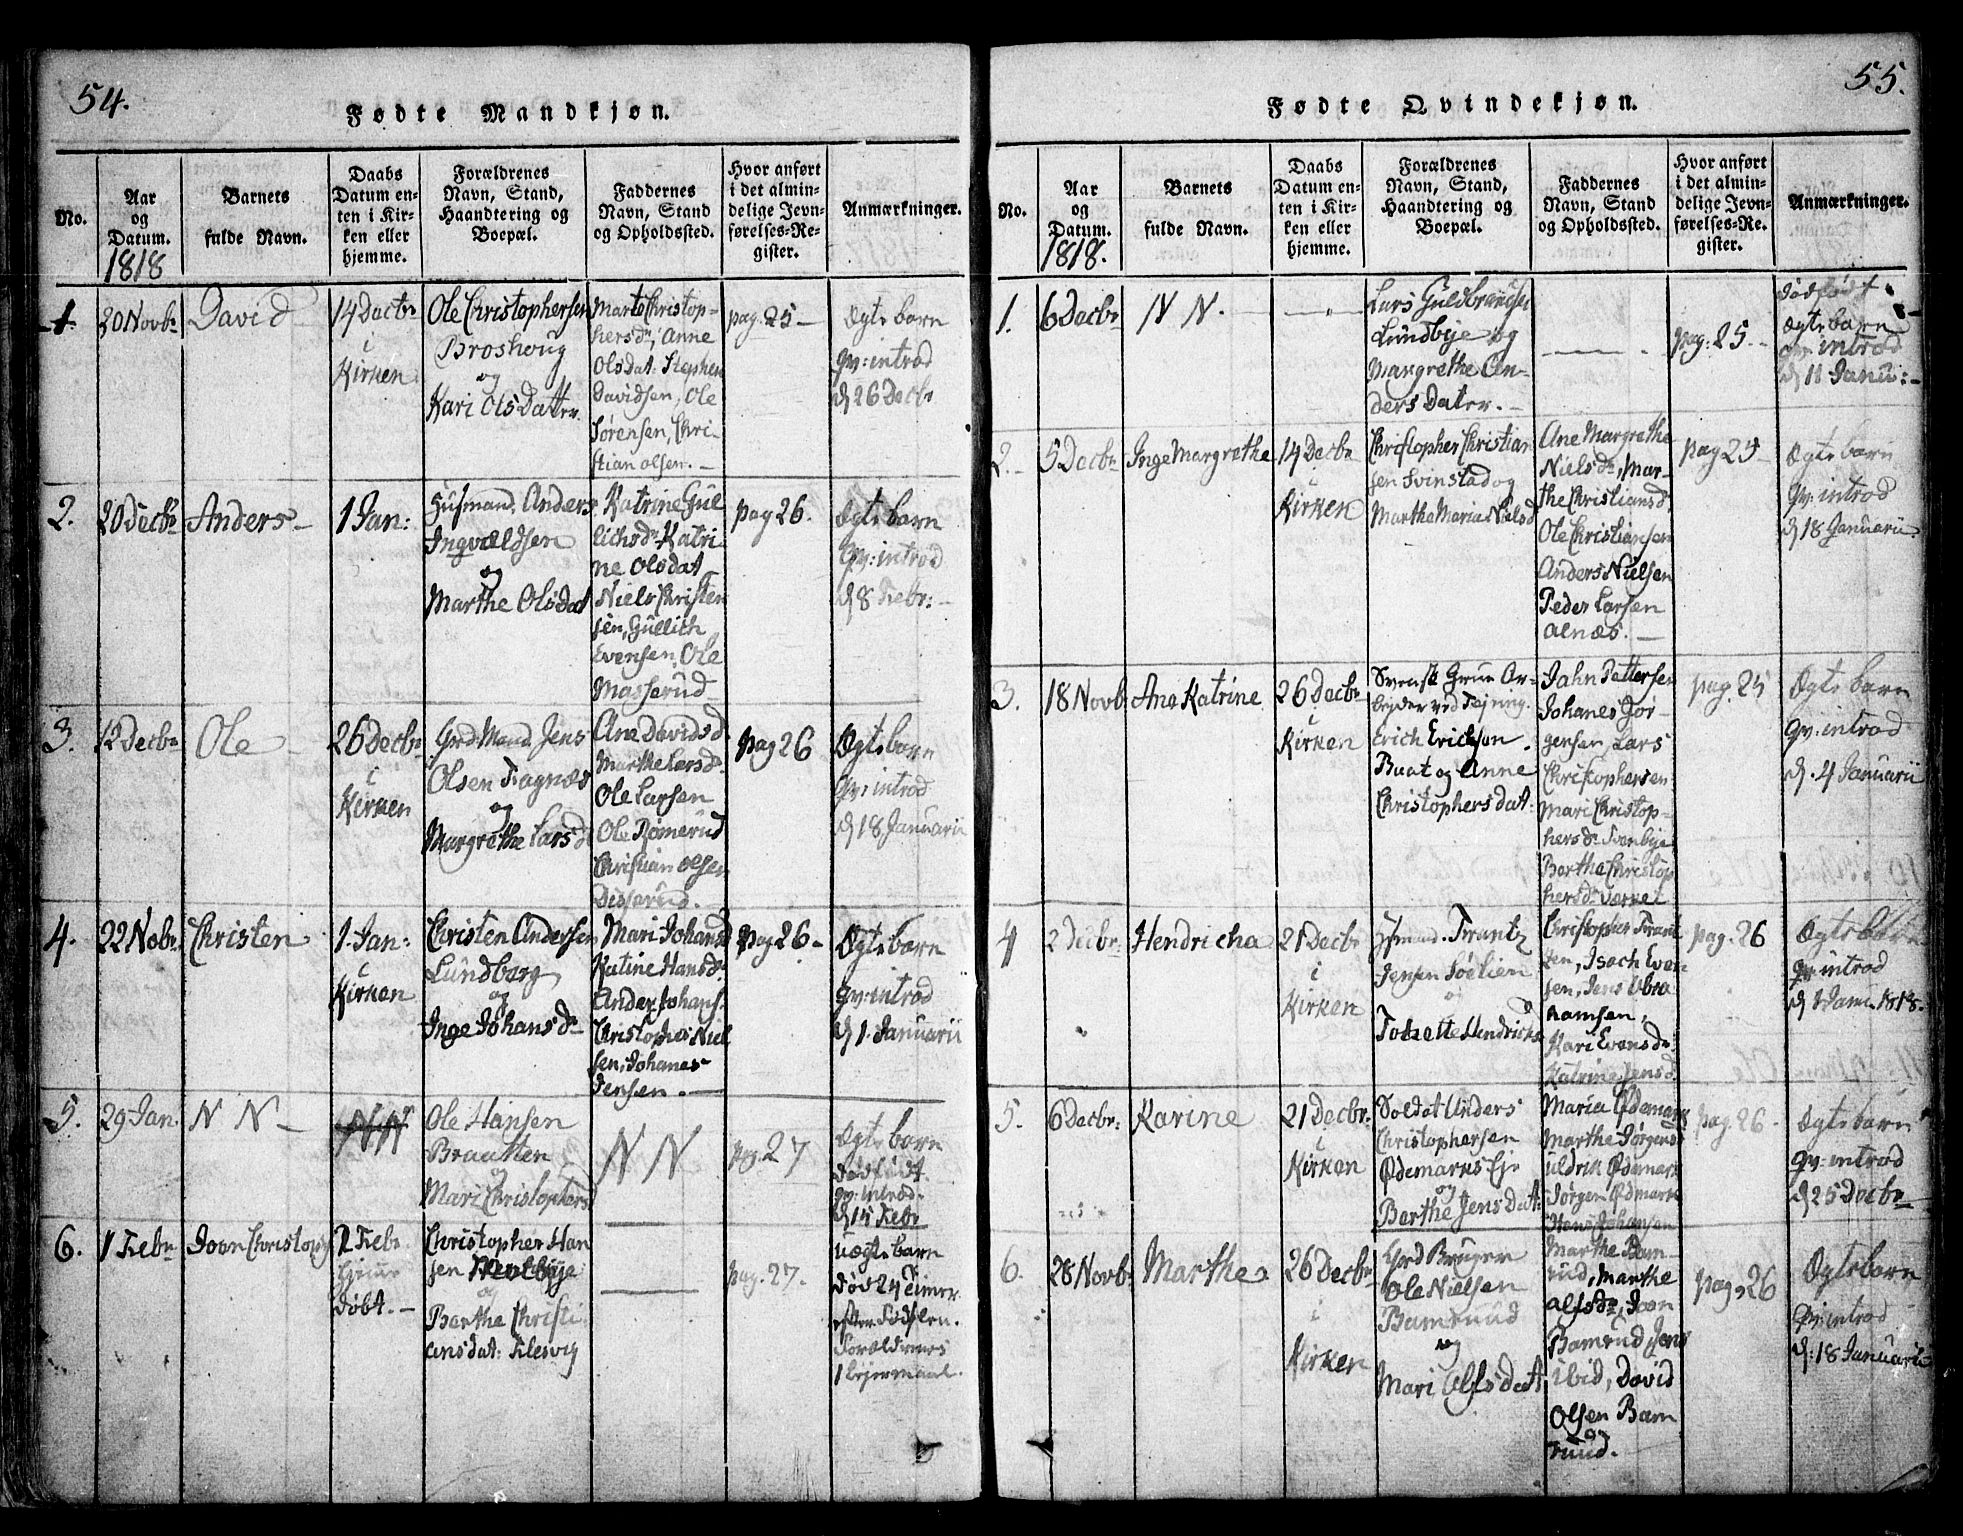 54.
Fødte Mandkjøn.
No.
Aar
og
Datum.
1818
Barnets
fulde Navn.
Daabs
Datum en-
ten i Kir-
ken eller
hjemme.
Forældrenes
Navn, Stand,
Haandtering og
Boepæl.
Faddernes
Navn, Stand
og Opholdssted.
Hvor anført
i det almin-
delige Jevn-
førelses-Re-
gister.
Anmærkninger.
1
20 Novbr
David
14 Decbr
i
Kirken
Ole Christophersen
Broshoug
og
Kari Olsdatter
Marte Christop-
hersdr, Anne
Olsdat: Stephen
Davidsen, Ole
Sørensen, Chri-
stian olsen. —
pag. 25 —
Ægte barn
qv: introd
d 26 Decbr
2.
20 Decbr
Anders —
1 Jan:
Husmand. Anders
Ingvaldsen
og
Marthe Olsdat
Katrine Gul
lichsdr Katri-
ne Olsdat
Niels Christen
sen, Gullich
Evensen, Ole
Masserud
pag 26.
Ægte barn
qv: introd
d 8 Febr: —
3.
12 Decbr
Ole —
26 Decbr
i
Kirken
Grd Mand Jens
Olsen Fragnæs
og
Margrethe Larsd
Ane Davidsd
Marthe Larsdr
Ole Larsen
Ole Rømerud
Christian olsen
Disserud.
pag 26
Ægte barn
qv: introd
d 18 Januarii
4.
22 Nobr.
Christen
1. Jan:
i
Kirken
Christen Andersen
Lundborg
og
Inge Johansdr
Mari Johansd
Katine Hansdr
Ander Johans.
Christopher Niel
sen, Johanes
Jensen. —
pag 26 -
Ægte barn
qv: introd
d 1. Januarii
5.
29 Jan.
N N —
NN
Ole Hansen
Braatten
og
Mari Christophersd
N N
pag. 27
Ægte barn
dødfødt.
qv: introd.
d 15 Febr
6.
1 Febr
Joen Christopher
2 Febr
hjem
døbt. —
Christopher Han
sen
og
Berthe Christi
ansdat: Klesvig
pag. 27.
uægte barn
død 24 Timer
efter Fødslen.
Forældrenes
1 Lejermaal.
55.
Fødte Qvindekjøn.
No.
Aar
og
Datum.
1818.
Barnets
fulde Navn.
Daabs
Datum en-
ten i Kir-
ken eller
hjemme.
Forældrenes
Navn, Stand,
Haandtering og
Boepæl.
Faddernes
Navn, Stand
og Opholdssted.
Hvor anført
i det almin-
delige Jevn-
førelses-Re-
gister.
Anmærkninger.
1.
6 Decbr
N N.
Lars Guldbrandsen
Lundbye og
Margrethe An-
ders Dater. —
pag: 25 —
dødfødt
Ægte barn
qv: introd
d 11 Janu: —
2.
5 Decbr
Inge Margrethe
14 Decbr
i
Kirken
Christopher Christian
sen Svinstad og
Marthe Maria Nielsd
Ane Margrethe
Nielsdr, Mar-
the Christiansd.
Ole Christiansen
Anders Nielsen
Peder Larsen
alnæs. —
pag 25
Ægte barn
qv: introd
d 18 Januarii.
3.
18 Novbr
Ane Katrine
26 Decbr
i
Kirken
Svensk Gru Ar-
bejder ved
Erich Erichsen.
Buat og Anne
Christophersdat:
Jahn Pettersen
Johanes Jør-
gensen, Lars
Christophersen
Mari Christop-
hersdr
Berthe Christop
hersdr Værket
pag. 25
Ægte barn
qv: introd
d. 4 Januarii
4
2 Decbr
Hendricha
21 Decbr
i
Kirken
Hsmand. Frantz
Jensen Soelien
og
Hendrichs
Christopher Frant
zen, Isach Even
sen, Jens Abra
hamsen,
Kari Evensdr
Katrine Jensd.
pag. 26
Ægte barn
qv: introd
d 1 Janu. 1818.
5.
6 Decbr:
Karine
21 Decbr:
i
Kirken
Soldat Anders
Christophersen
Ødemarks Eje
og
Berthe Jensdat
Maria Ødemark
Marthe Jørgensd
uldrik Ødemark
Jørgen Ødmark
Hans Johansen
pag. 26
Ægte barn
qv: introd
d 25 Decbr —
6.
28 Novb:
Marthe
26 Decbr
i
Kirken
Grd Bruger
Ole Nielsen
Bamruud
og
Mari Alfsdat
Marthe Bam
rud, Marthe
alfsdr, Joen
Bamrud Jens
ibid, David
Olsen Bam
ruud.
pag. 26
Ægte barn
qv: introd
d: 18 Januarii